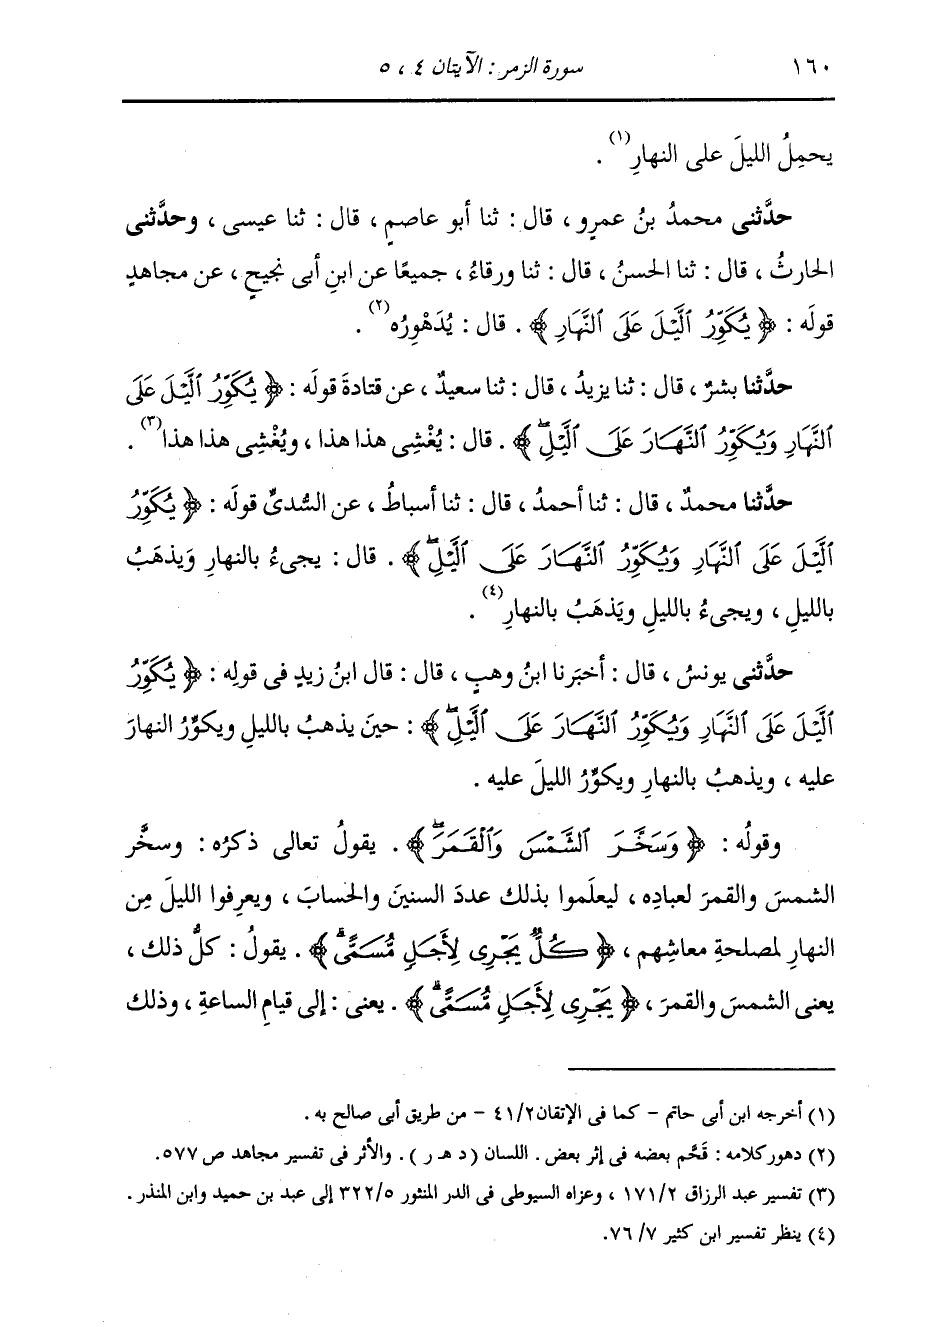 ١٦٠ سورة الزمر : الآيتان ٤ ، ٥
يحمِلُ الليلَ على النهارِ(١) .
حدَّثنى محمدُ بنُ عمرٍو ، قال : ثنا أبو عاصمٍ ، قال : ثنا عيسى ، وحدَّثنى
الحارثُ ، قال : ثنا الحسنُ ، قال : ثنا ورقاءُ ، جميعًا عن ابنِ أبى نجيحٍ ، عن مجاهدٍ
قولَه : ﴿ يُكَوِّرُ ٱلَّيْلَ عَلَى ٱلنَّهَارِ ﴾ . قال : يُدَهْوِرُه(٢) .
حدَّثنا بشرٌ ، قال : ثنا يزيدُ ، قال : ثنا سعيدٌ ، عن قتادةَ قولَه : ﴿ يُكَوِّرُ ٱلَّيْلَ عَلَى
ٱلنَّهَارِ وَيُكَوِّرُ ٱلنَّهَارَ عَلَى ٱلَّيْلِۖ ﴾ . قال : يُغْشِى هذا هذا ، ويُغْشِى هذا هذا(٣) .
حدَّثنا محمدٌ ، قال : ثنا أحمدُ ، قال : ثنا أسباطُ ، عن السُّدىِّ قولَه : ﴿ يُكَوِّرُ
ٱلَّيْلَ عَلَى ٱلنَّهَارِ وَيُكَوِّرُ ٱلنَّهَارَ عَلَى ٱلَّيْلِۖ ﴾ . قال : يجىءُ بالنهارِ وَيذهَبُ
بالليلِ ، ويجىءُ بالليلِ ويَذهَبُ بالنهارِ(٤) .
حدَّثنى يونسُ ، قال : أخبَرنا ابنُ وهبٍ ، قال : قال ابنُ زيدٍ فى قولِه : ﴿ يُكَوِّرُ
ٱلَّيْلَ عَلَى ٱلنَّهَارِ وَيُكَوِّرُ ٱلنَّهَارَ عَلَى ٱلَّيْلِۖ ﴾ : حينَ يذهبُ بالليلِ ويكوِّرُ النهارَ
عليه ، ويذهبُ بالنهارِ ويكوِّرُ الليلَ عليه .
وقولُه : ﴿ وَسَخَّرَ ٱلشَّمْسَ وَٱلْقَمَرَۖ ﴾ . يقولُ تعالى ذكرُه : وسخَّر
الشمسَ والقمرَ لعبادِه ، ليعلَموا بذلك عددَ السنينَ والحسابَ ، ويعرِفوا الليلَ مِن
النهارِ لمصلحةِ معاشِهم ، ﴿ كُلٌّ يَجْرِى لِأَجَلٍ مُّسَمًّىۗ ﴾ . يقولُ : كلُّ ذلك ،
يعنى الشمسَ والقمرَ ، ﴿ يَجْرِى لِأَجَلٍ مُّسَمًّىۗ ﴾ . يعنى : إلى قيامِ الساعةِ ، وذلك
(١) أخرجه ابن أبى حاتم – كما فى الإتقان ٤١/٢ – من طريق أبى صالح به .
(٢) دهور كلامه : قَحَّم بعضه فى إثر بعض . اللسان ( د هـ ر ) . والأثر فى تفسير مجاهد ص ٥٧٧.
(٣) تفسير عبد الرزاق ١٧١/٢ ، وعزاه السيوطى فى الدر المنثور ٣٢٢/٥ إلى عبد بن حميد وابن المنذر .
(٤) ينظر تفسير ابن كثير ٧/ ٧٦.